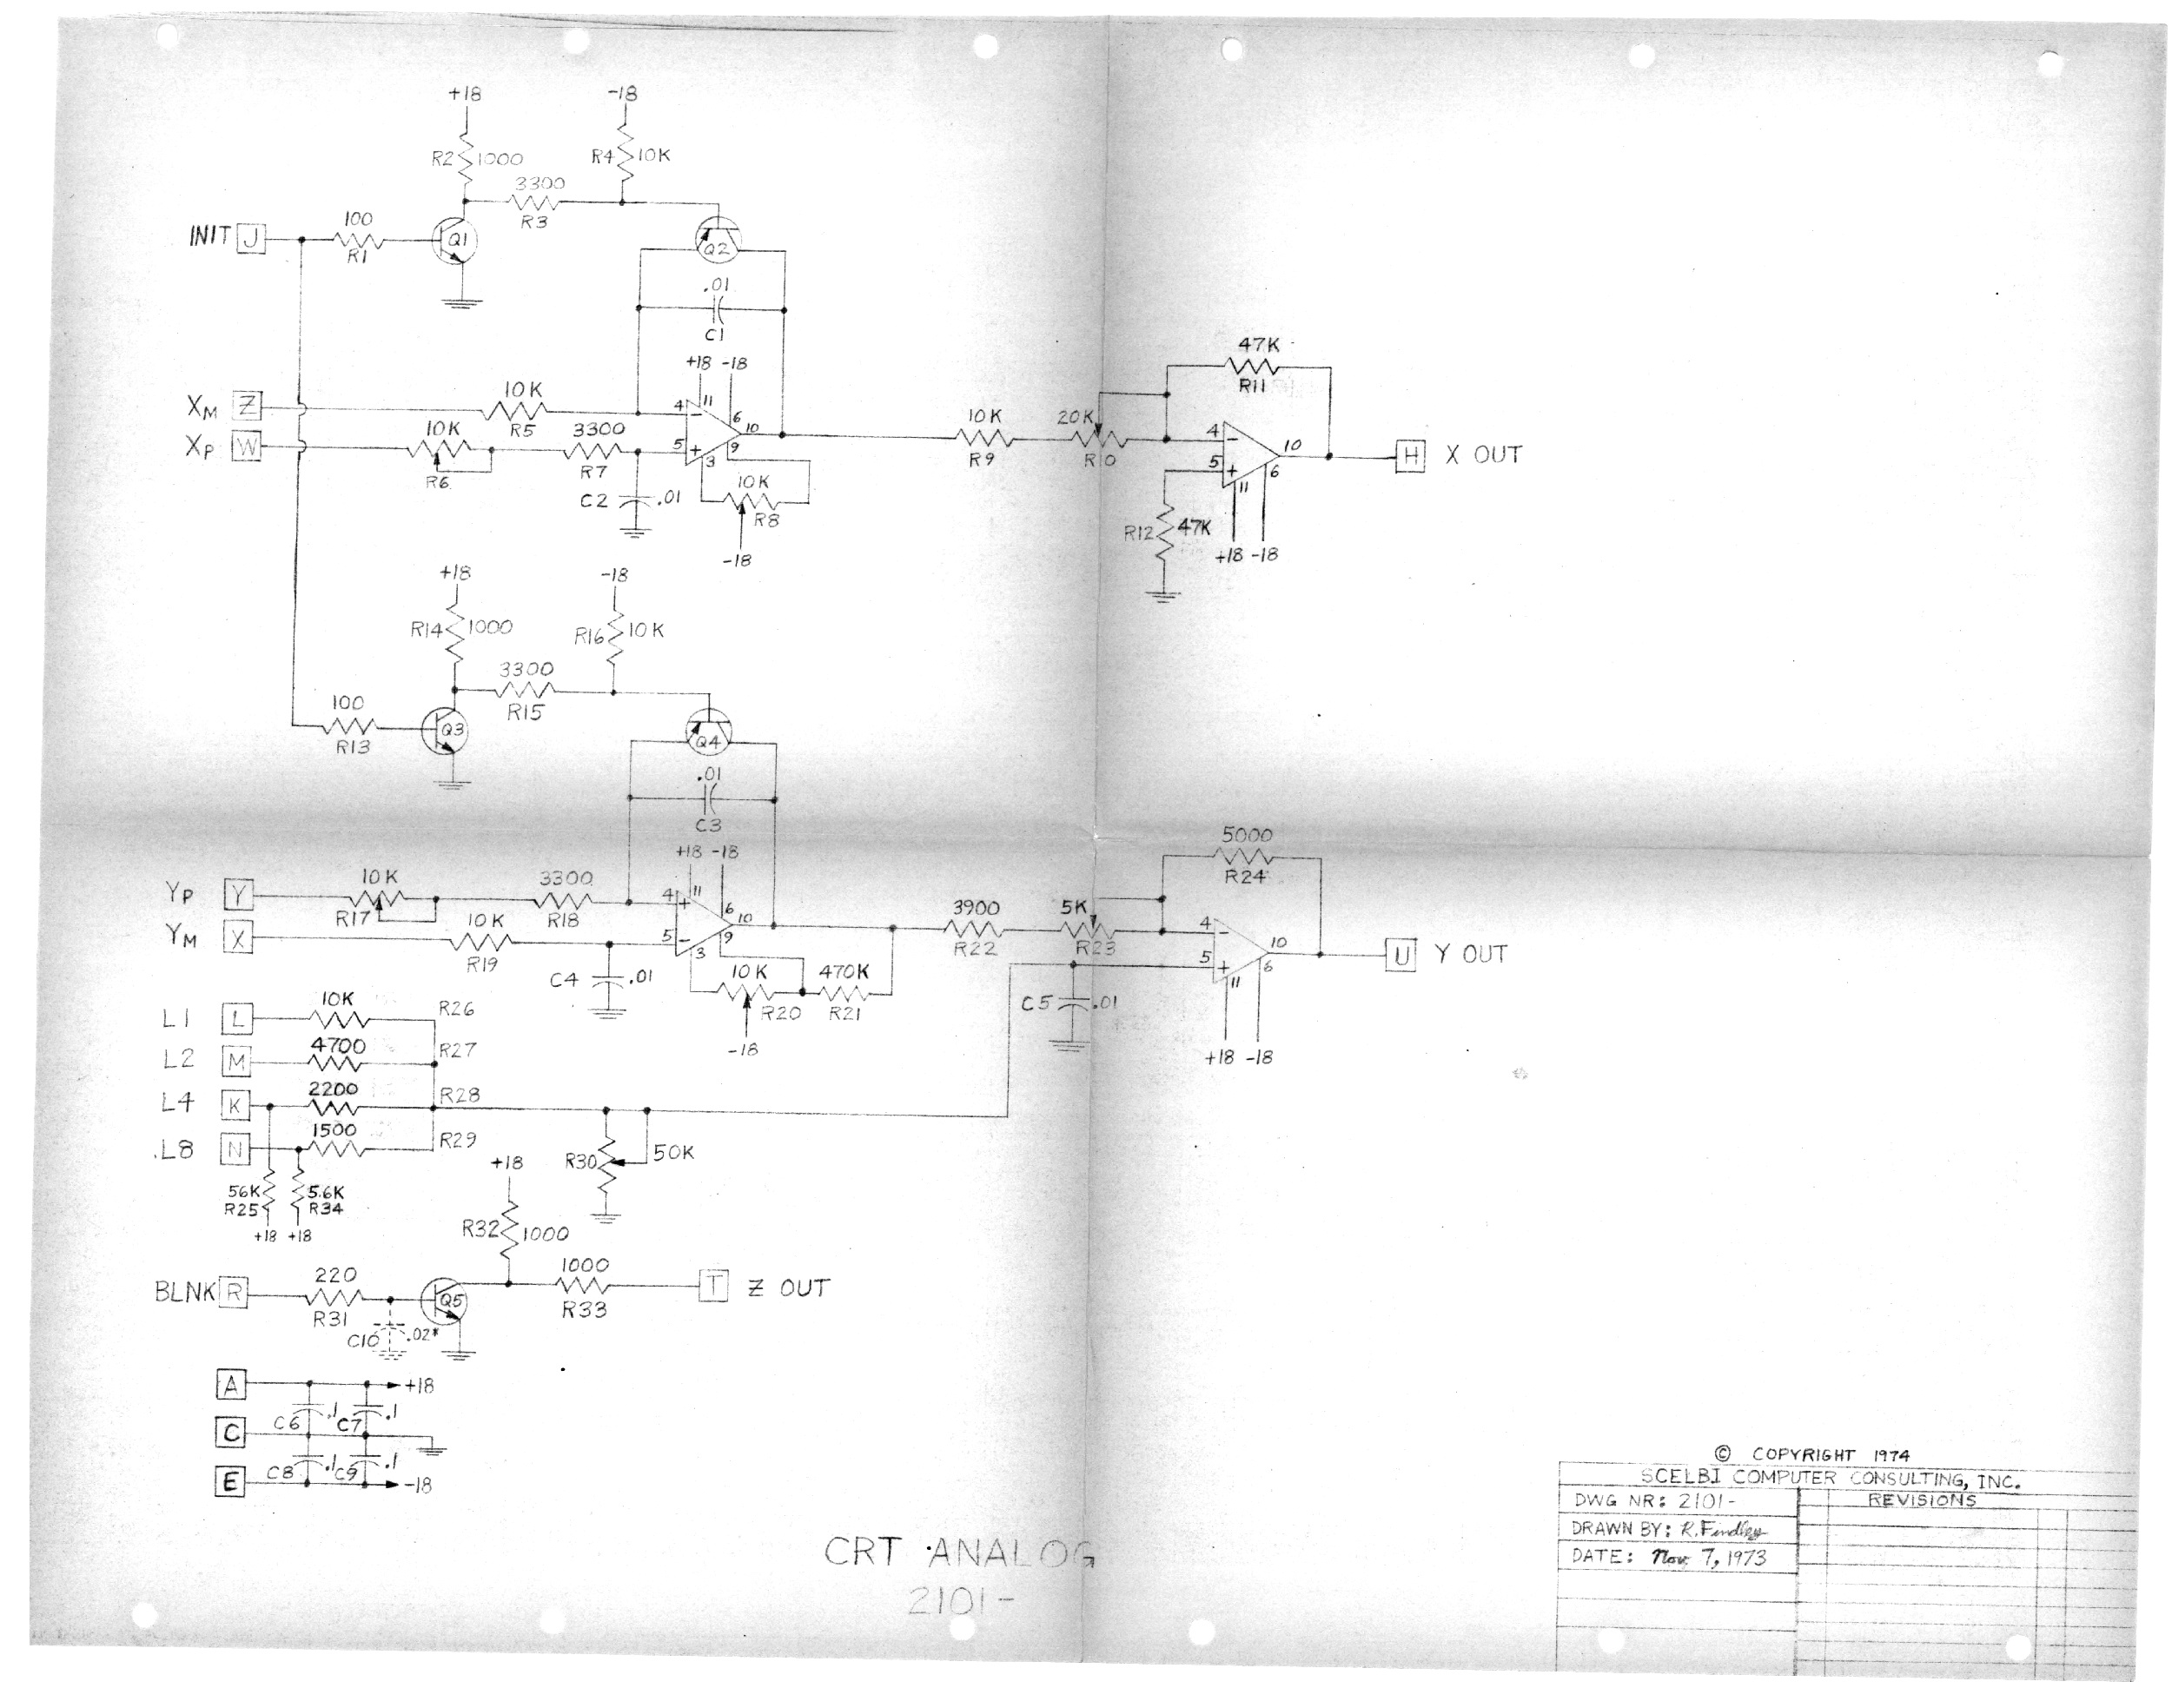 +18
-18
R2
1000
R4
10K
3300
R3
INIT
J
100
R1
Q1
Q2
.01
C1
+18 -18
XM
Z
10K
R5
4
11
6
10
XP
W
10K
R6
3300
R7
5
3
9
C2
.01
10K
R8
-18
10K
R9
20K
R10
47K
R11
4
5
10
6
11
R12
47K
+18 -18
H
X OUT
+18
-18
R14
1000
R16
10K
3300
R15
100
R13
Q3
Q4
.01
C3
+18 -18
YP
Y
10K
R17
3300
R18
4
11
6
10
YM
X
10K
R19
5
3
9
C4
.01
10K
R20
470K
R21
-18
3900
R22
5K
R23
5000
R24
4
5
10
6
11
C5
.01
+18 -18
U
Y OUT
L1
L
10K
R26
L2
M
4700
R27
L4
K
2200
R28
.L8
N
1500
R29
56K
R25
+18
5.6K
R34
+18
R30
50K
+18
R32
1000
BLNK
R
220
R31
C10
.02*
Q5
1000
R33
T
Z OUT
A
+18
C6
.1
C7
.1
C
C8
.1
C9
.1
E
-18
CRT ANALOG
2101-
© COPYRIGHT 1974
SCELBI COMPUTER CONSULTING, INC.
DWG NR: 2101-
REVISIONS
DRAWN BY: R. Findley
DATE: Nov 7, 1973